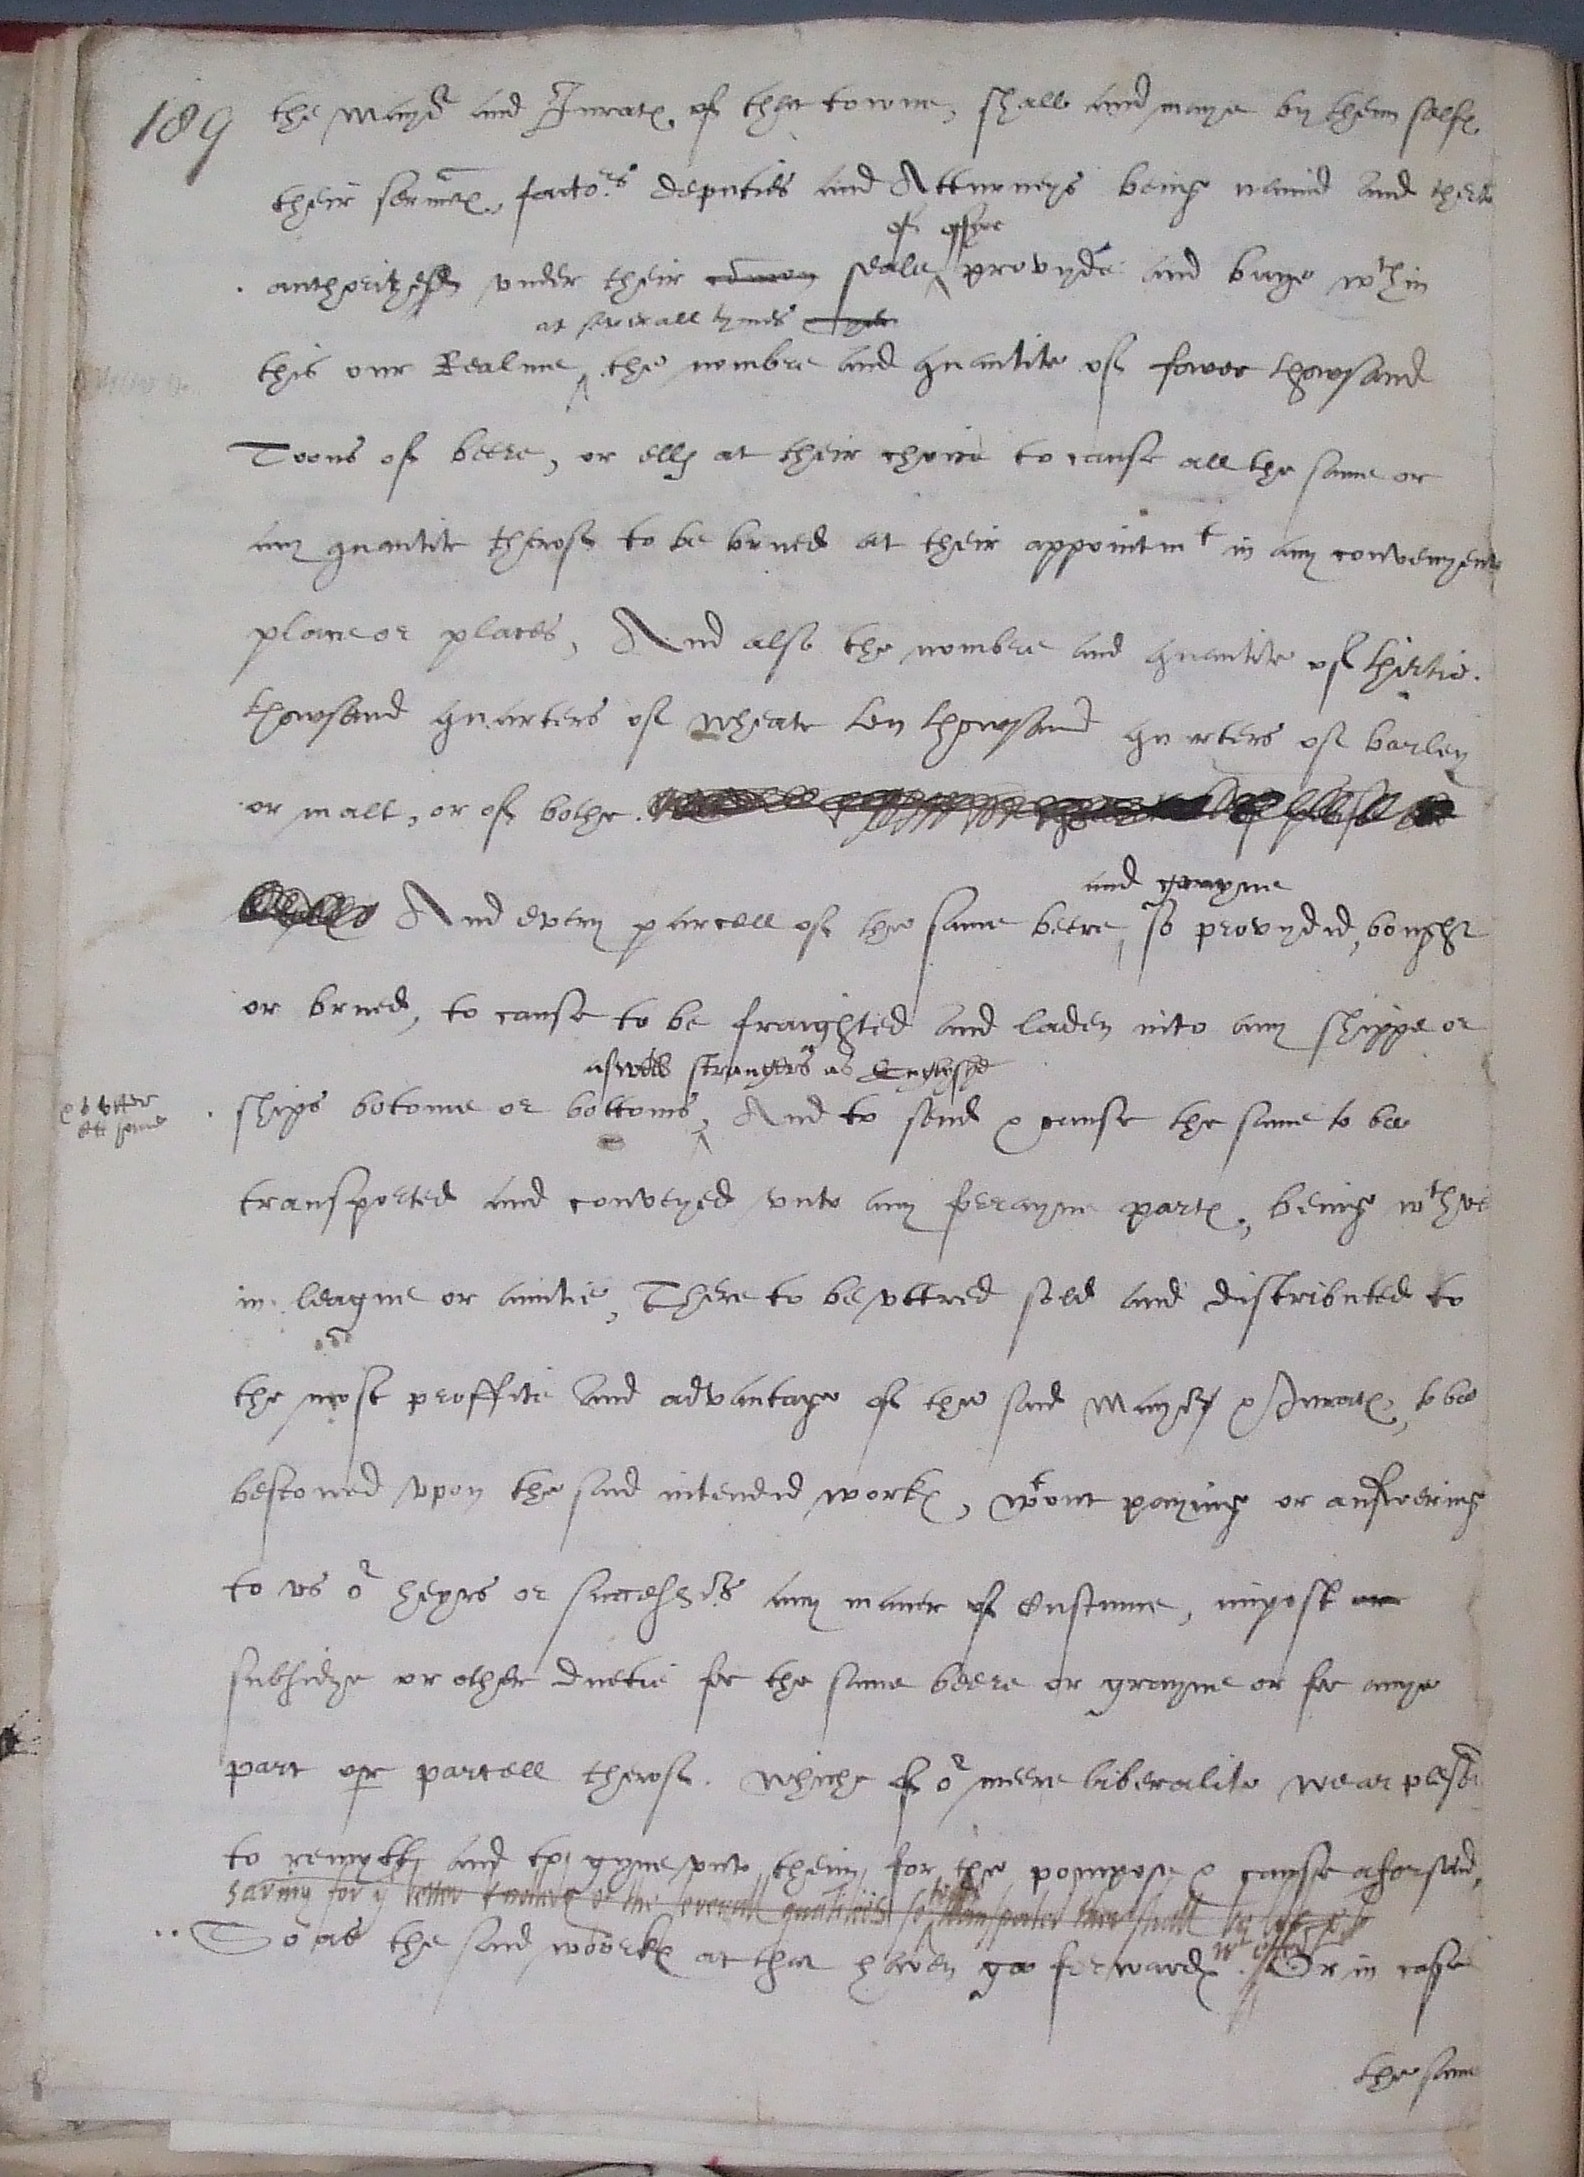 189
the Mayor and Jurates of that towne, shall and maye by them selfs
their servantes, factors deputies and Atturneys being namid and therto
of office
authorithesed under their comon seale provyde and buye wthin
at severall tymes
this our Realme, the nombre and quantite of fower thowsand
Toons of beere, or ells at their choice to cause all the same or
any quantite therof to be brued at their appointmt in any convenyent
place or places, And also the nombre and quantite of thirtie
thowsand quarters of wheate ten thowsand quarters of barley
or malt, or of bothe.
and grayne
And every parcell of the same beere, so provydid, bought
or brued, to cause to be fraighted and laden into any shippe or
aswell strangers as Englyshe
ships botome or bottoms, And to send & cause the same to bee
transported and conveyed unto any forrayne partes, being wth us
in league or amitie, There to be uttred sold and distributed to
the most proffite and advantage of the said Mayor & Jurates, to be
bestowed upon the said intendid workes, wtout payeing or answering
to us or heyrs or successors any maner of Custume, impost or
subsidye or other duetie for the same beere or grayne or for anye
part or parcell therof. Whiche of or meere liberalite we ar pleasd
to remytt and to gyve unto them for the pourpose & cause aforsaid,
saving for ye better the severall quantities so transported shall
So as the said woorkes at that haven go forwards. Or in case
the same